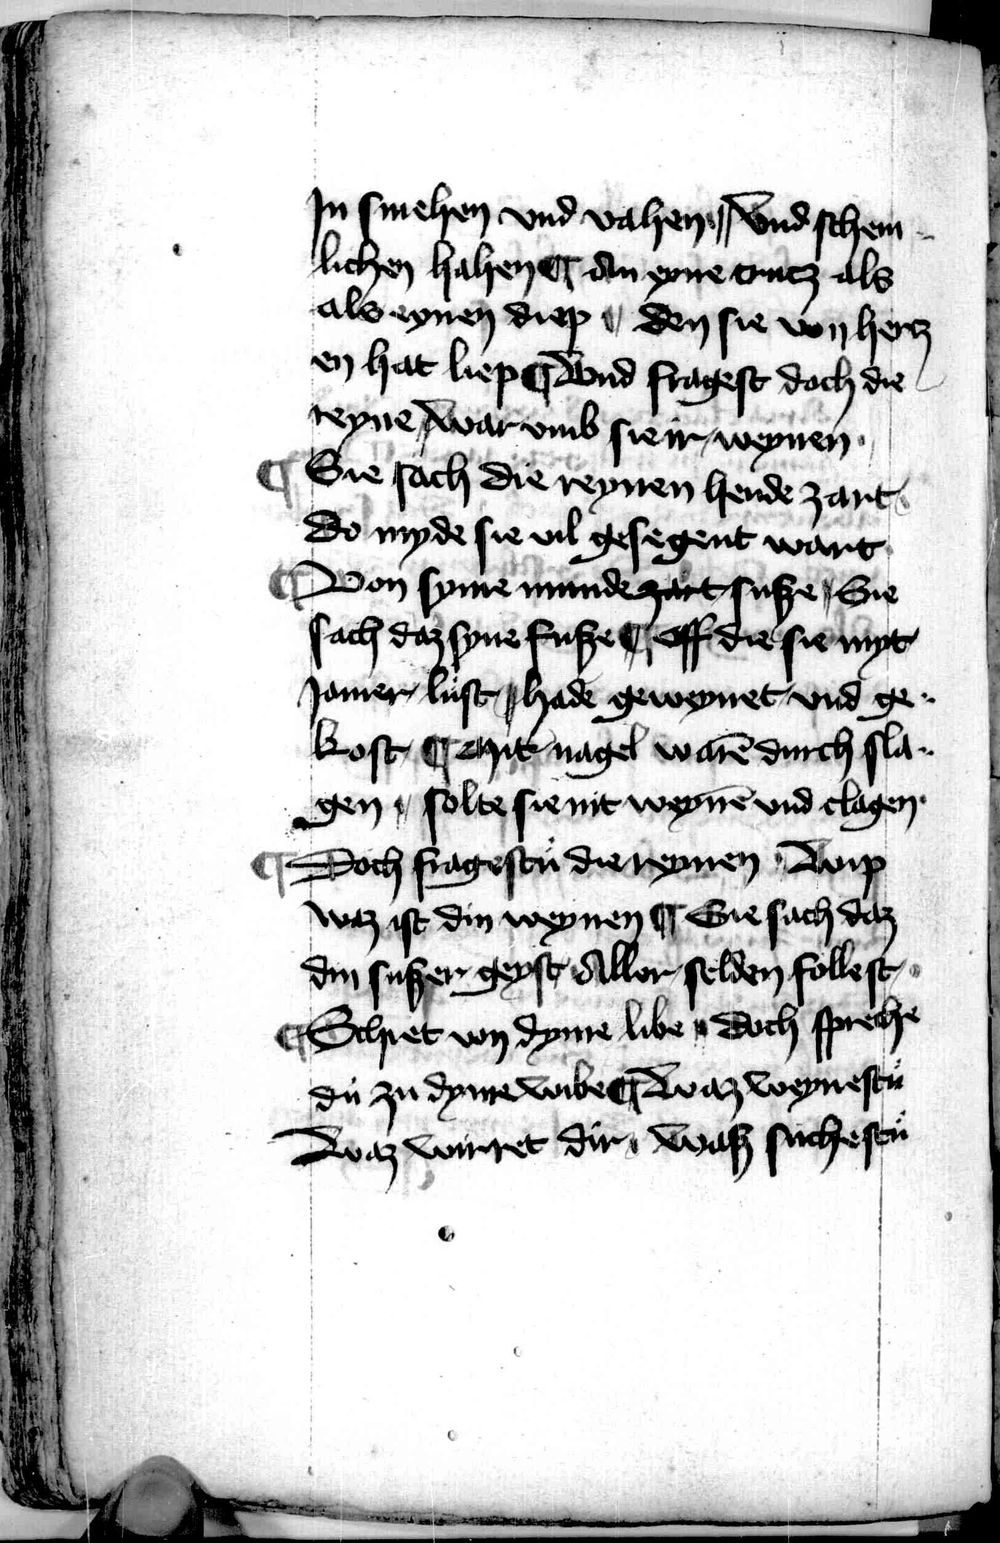 In smehen vnd vahen // Vnd schem
lichen hahen ¶ An eyne crucz als
als eynen diep // den sie von hercz
en hat liep ¶ Vnd fragest doch die
reyne / War vmb sie ir weynen
¶ Sie sach die reynen hende zart
do myde sie vil gesegent wart
¶ Von syme munde zart suße // Sie
sach daz syne fuße ¶ Off die sie myt
Jamer lust // hade geweynet vnd ge
kost ¶ Mit nagel warē durch sla
gen // solte sie nit weynē vnd clagen
¶ Doch fragestu die reynen Wip
waz ist din weynen ¶ Sie sach daz
din sußer geyst Aller selden follest
¶ Schiet von dyme libe // doch spreche
du zu dyme wibe ¶ Waz weynestu
Waz wirret dir // Waß suchestu